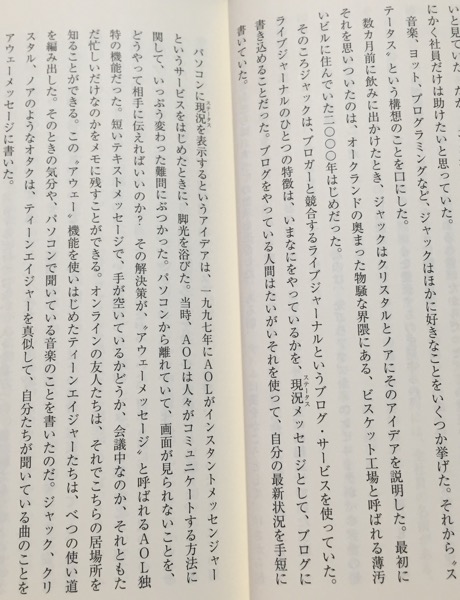 いと見ていた。だが、
にかく社員だけは助けたいと思っていた。
音楽、ヨット、プログラミングなど、ジャックはほかに好きなことをいくつか挙げた。それから〝ス
テータス〟という構想のことを口にした。
数カ月前に飲みに出かけたとき、ジャックはクリスタルとノアにそのアイデアを説明した。最初に
それを思いついたのは、オークランドの奥まった物騒な界隈にある、ビスケット工場と呼ばれる薄汚
いビルに住んでいた二〇〇〇年はじめだった。
そのころジャックは、ブロガーと競合するライブジャーナルというブログ・サービスを使っていた。
ライブジャーナルのひとつの特徴は、いまなにをやっているかを、現況メッセージとして、ブログに
書き込めることだった。ブログをやっている人間はたいがいそれを使って、自分の最新状況を手短に
書いていた。
パソコンに現況を表示するというアイデアは、一九九七年にAOLがインスタントメッセンジャー
というサービスをはじめたときに、脚光を浴びた。当時、AOLは人々がコミュニケートする方法に
関して、いっぷう変わった難問にぶつかった。パソコンから離れていて、画面が見られないことを、
どうやって相手に伝えればいいのか？ その解決策が、〝アウェーメッセージ〟と呼ばれるAOL独
特の機能だった。短いテキストメッセージで、手が空いているかどうか、会議中なのか、それともた
だ忙しいだけなのかをメモに残すことができる。オンラインの友人たちは、それでこちらの居場所を
知ることができる。この〝アウェー〟機能を使いはじめたティーンエイジャーたちは、べつの使い道
を編み出した。そのときの気分や、パソコンで聞いている音楽のことを書いたのだ。ジャック、クリ
スタル、ノアのようなオタクは、ティーンエイジャーを真似して、自分たちが聞いている曲のことを
アウェーメッセージに書いた。